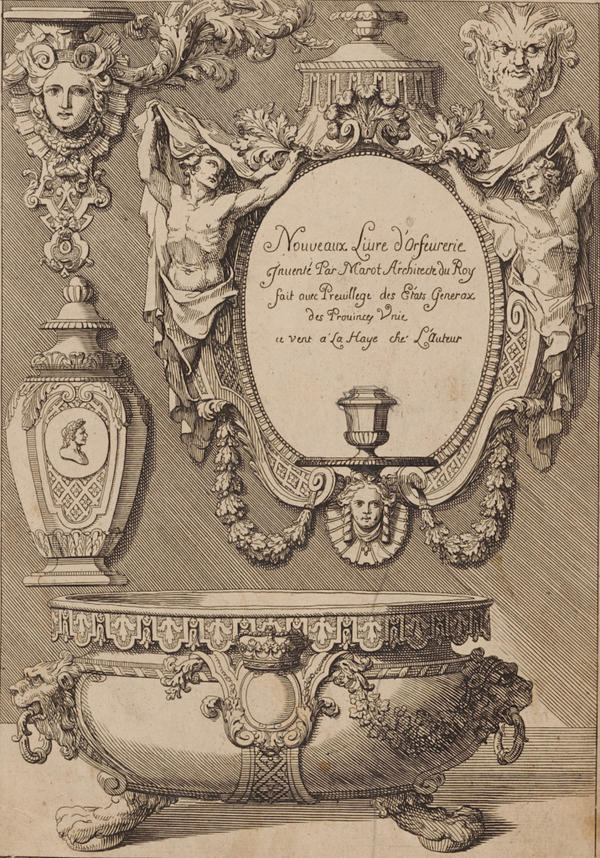 Nouveaux Liure d'Orfeurerie
Jnuenté Par Marot Architecte du Roy
fait auec Preuillege des États Generax
des Prouinces Vnie
ce vent a La Haye ché L'Auteur